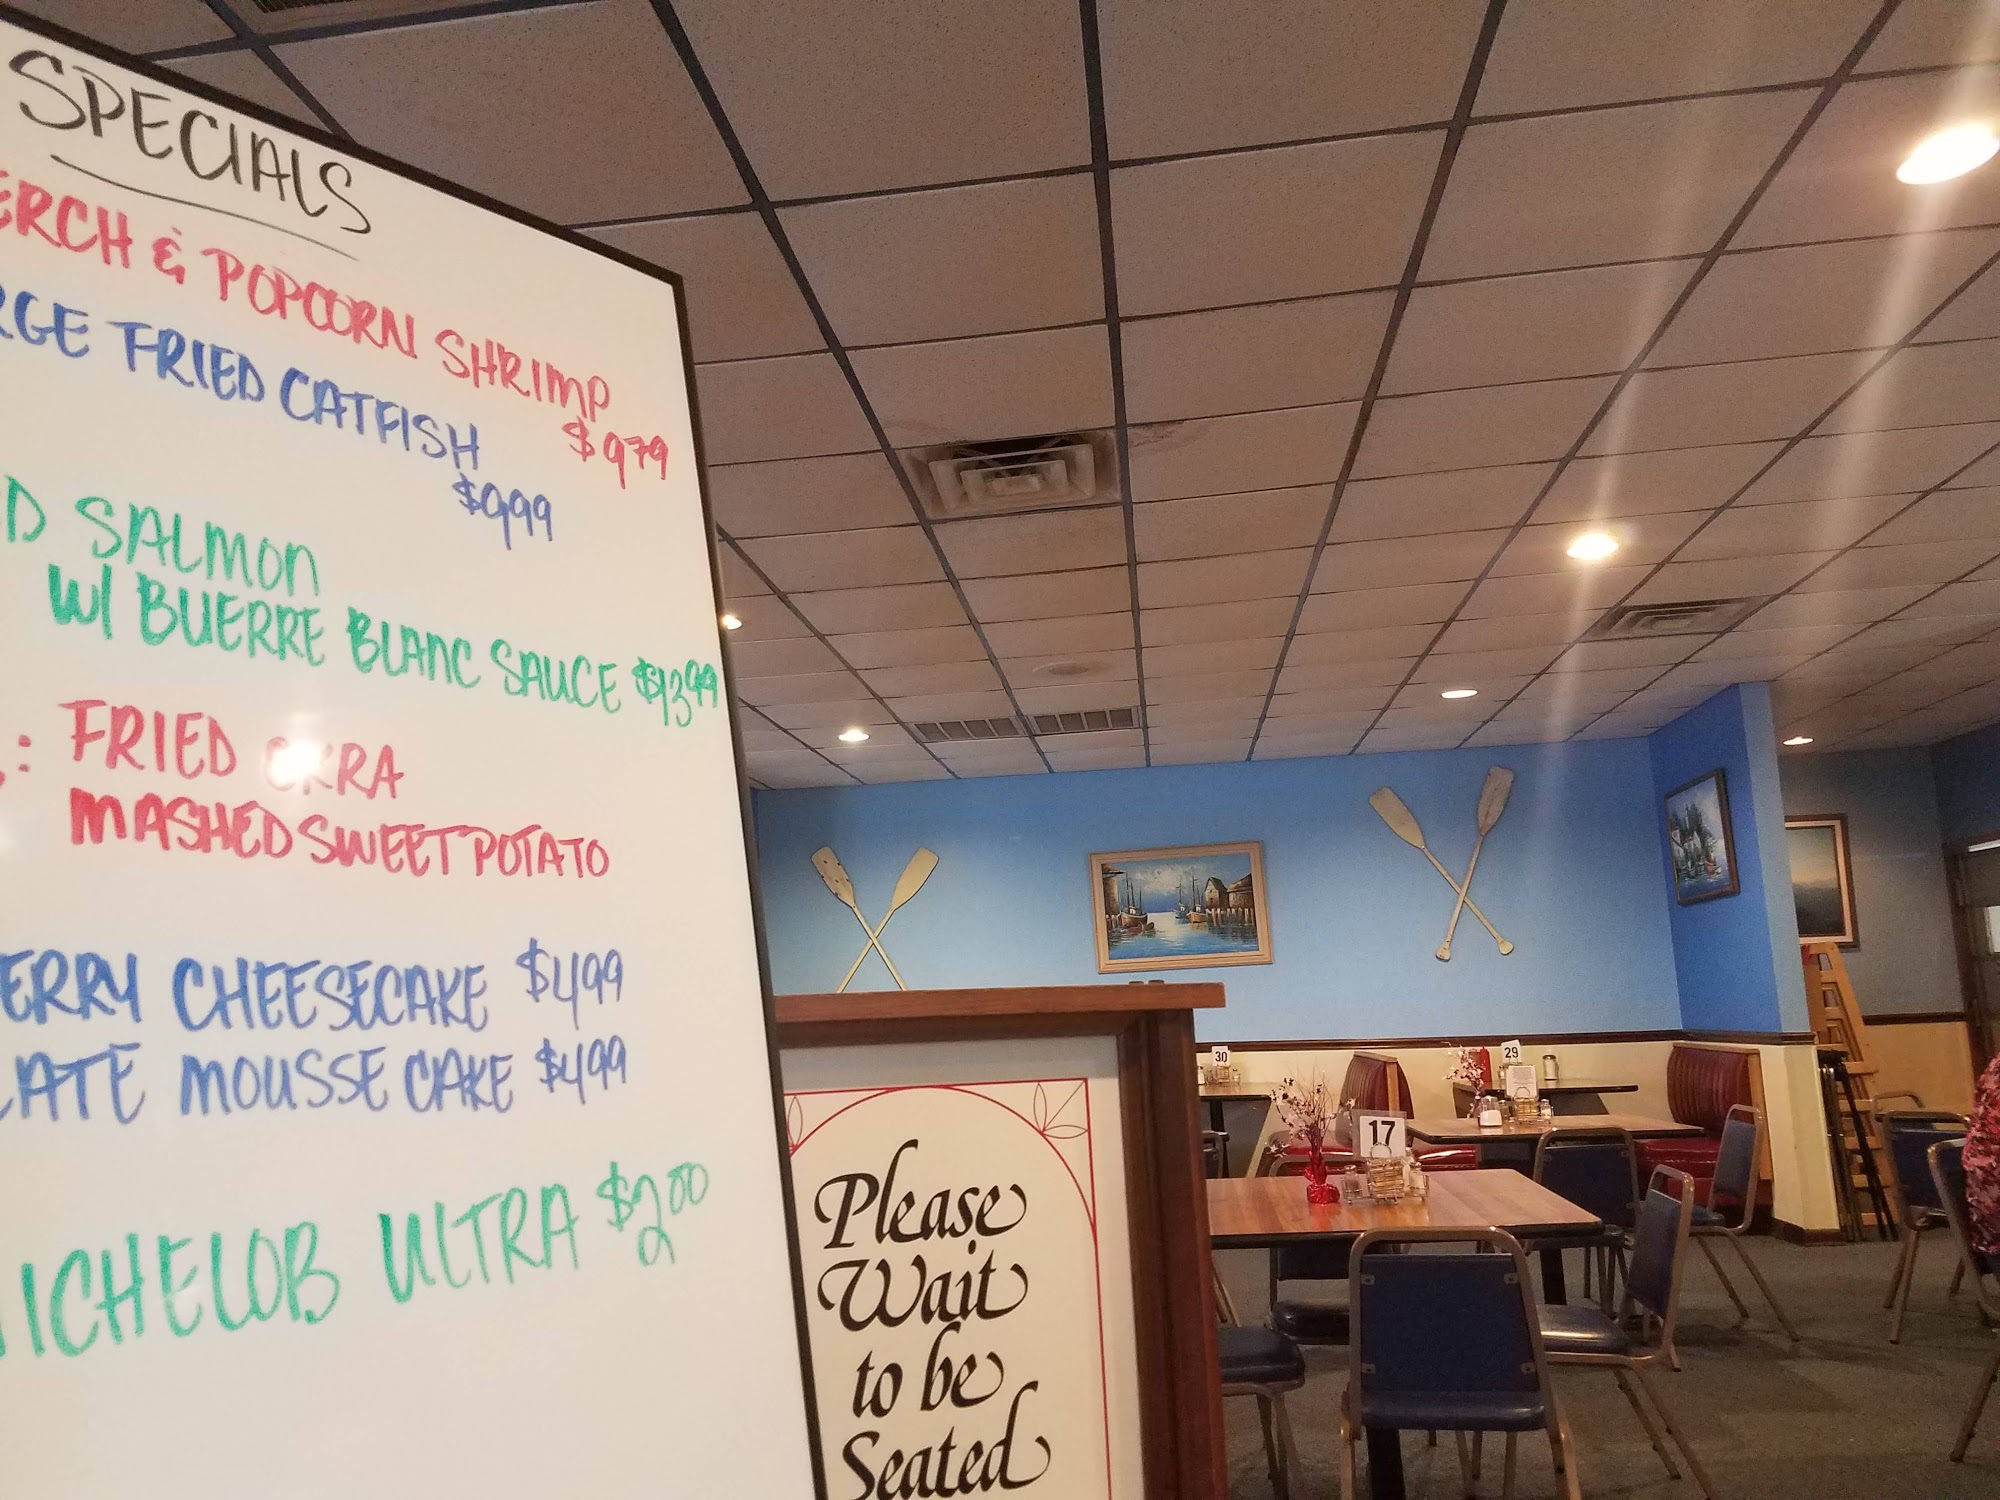 SPECIALS
ERCH & POPCORN SHRIMP
$979
RGE FRIED CATFISH
$999
D SALMON
W/ BUERRE BLANC SAUCE $1399
: FRIED OKRA
MASHED SWEET POTATO
ERRY CHEESECAKE $499
LATE MOUSSE CAKE $499
ICHELOB ULTRA $200
Please
Wait
to be
Seated
30
29
17